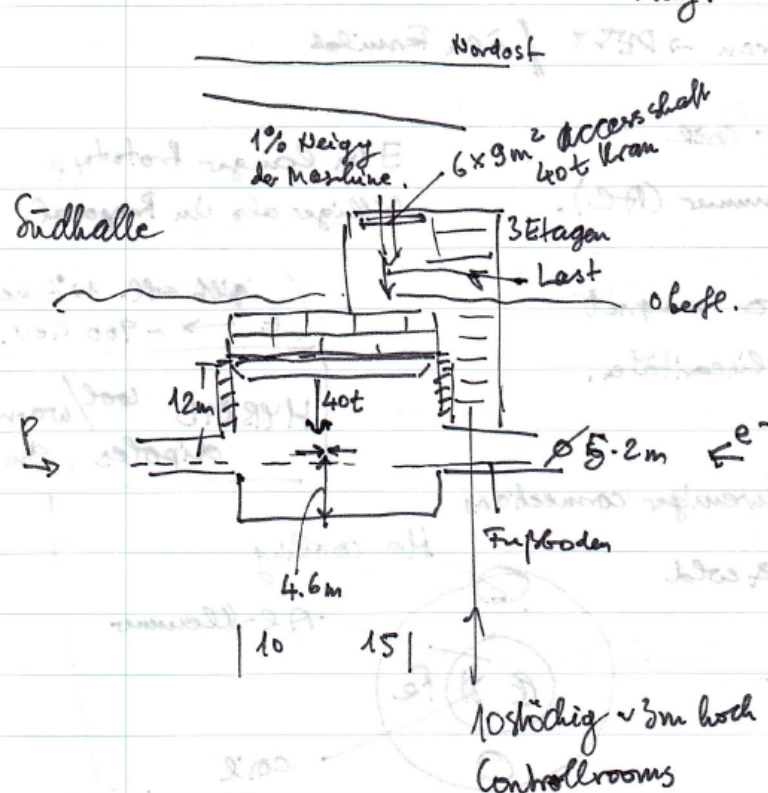 Nordost
1% Neigg
der Maschine.
6 x 9 m² Access shaft
40t Kran
Südhalle
3 Etagen
Last
Oberfl.
12m
40t
P
Ø 5.2m
e⁻
Fußboden
4.6m
10 15
10stöckig ~ 3m hoch
Controllrooms